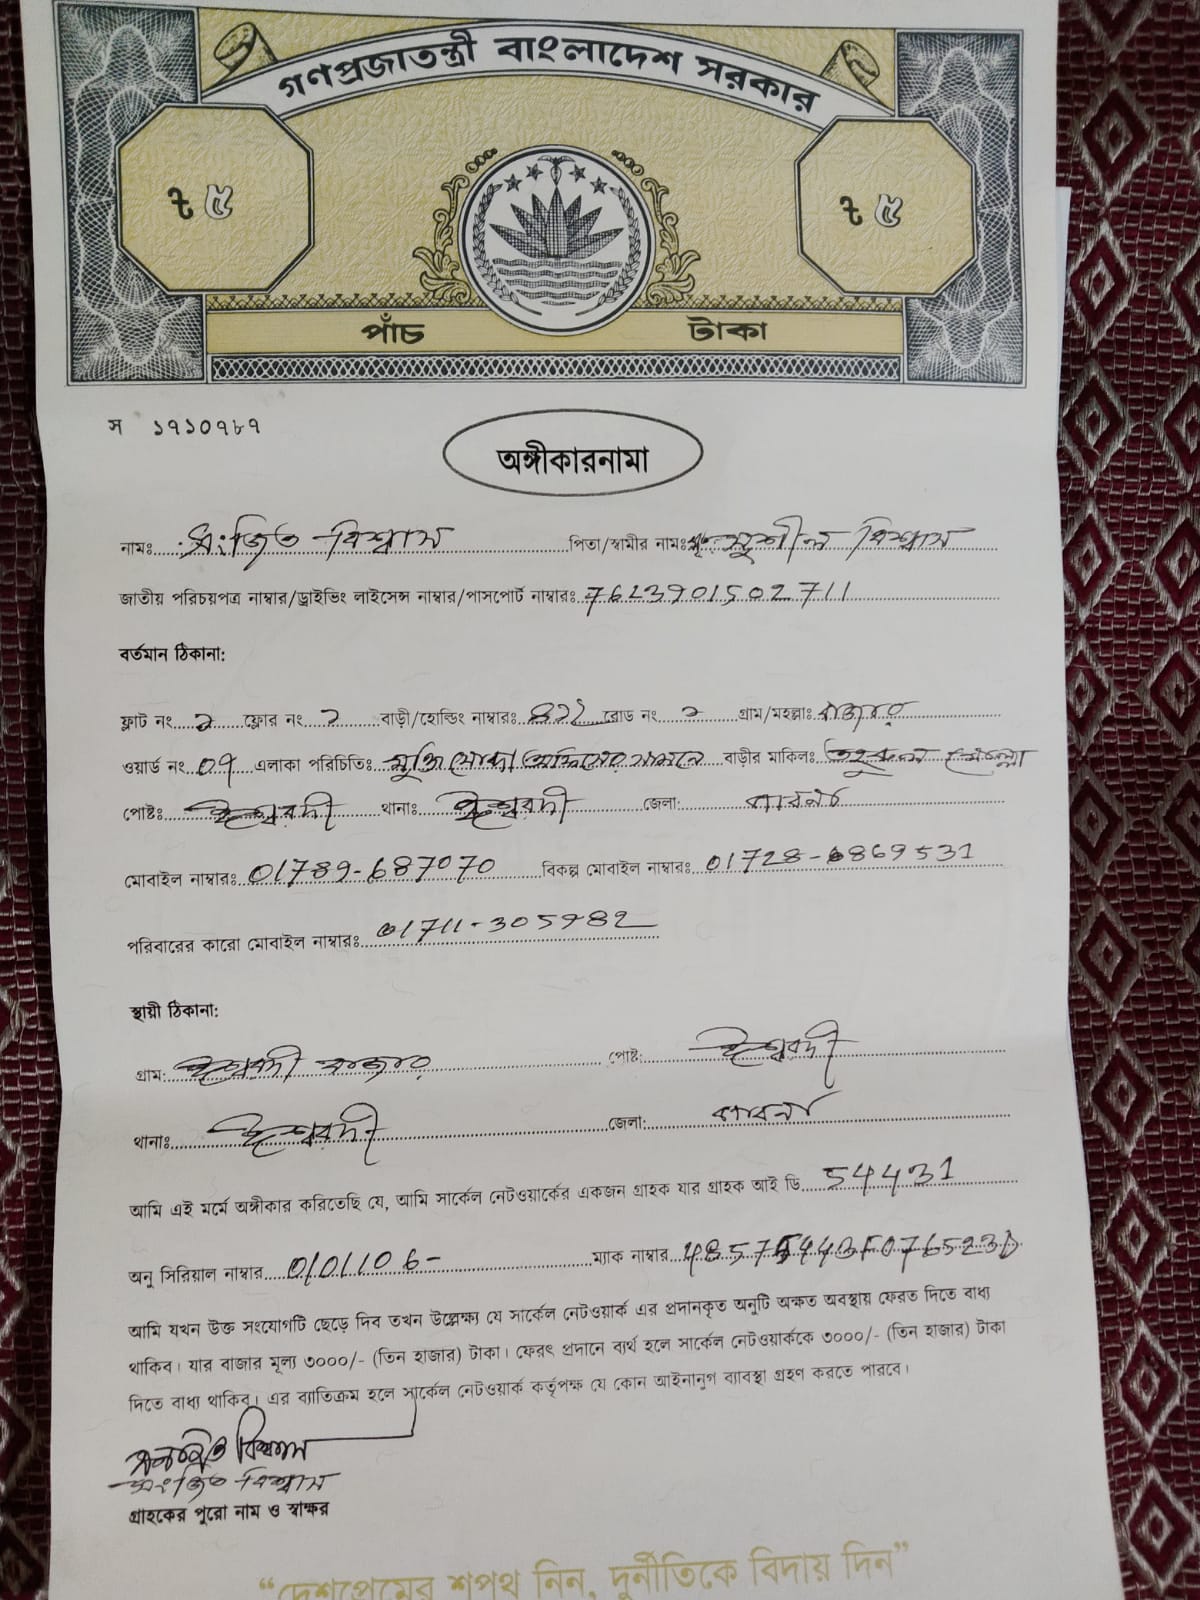 গণপ্রজাতন্ত্রী বাংলাদেশ সরকার
৳ ৫ ৳ ৫
পাঁচ টাকা
স ১৭১০৭৮৭
অঙ্গীকারনামা
নামঃ সংজিত বিশ্বাস পিতা/স্বামীর নামঃ সুশীল বিশ্বাস
জাতীয় পরিচয়পত্র নাম্বার/ড্রাইভিং লাইসেন্স নাম্বার/পাসপোর্ট নাম্বারঃ 7613901502711
বর্তমান ঠিকানা:
ফ্লাট নং ফ্লোর নং বাড়ী/হোল্ডিং নাম্বারঃ রোড নং গ্রাম/মহল্লাঃ বাজার
ওয়ার্ড নং 07 এলাকা পরিচিতিঃ অফিসের সামনে বাড়ীর মাকিলঃ
পোষ্টঃ ঈশ্বরদী থানাঃ ঈশ্বরদী জেলা: পাবনা
মোবাইল নাম্বারঃ 01789-687070 বিকল্প মোবাইল নাম্বারঃ 01728-6869531
পরিবারের কারো মোবাইল নাম্বারঃ 01711-305782
স্থায়ী ঠিকানা:
গ্রাম: ঈশ্বরদী বাজার পোষ্ট: ঈশ্বরদী
থানাঃ ঈশ্বরদী জেলা: পাবনা
আমি এই মর্মে অঙ্গীকার করিতেছি যে, আমি সার্কেল নেটওয়ার্কের একজন গ্রাহক যার গ্রাহক আই ডি 54431
অনু সিরিয়াল নাম্বার 0101106- ম্যাক নাম্বার
আমি যখন উক্ত সংযোগটি ছেড়ে দিব তখন উল্লেক্ষ্য যে সার্কেল নেটওয়ার্ক এর প্রদানকৃত অনুটি অক্ষত অবস্থায় ফেরত দিতে বাধ্য
থাকিব। যার বাজার মূল্য ৩০০০/- (তিন হাজার) টাকা। ফেরৎ প্রদানে ব্যর্থ হলে সার্কেল নেটওয়ার্ককে ৩০০০/- (তিন হাজার) টাকা
দিতে বাধ্য থাকিব। এর ব্যাতিক্রম হলে সার্কেল নেটওয়ার্ক কর্তৃপক্ষ যে কোন আইনানুগ ব্যাবস্থা গ্রহণ করতে পারবে।
বিশ্বাস
সংজিত বিশ্বাস
গ্রাহকের পুরো নাম ও স্বাক্ষর
“দেশপ্রেমের শপথ নিন, দুর্নীতিকে বিদায় দিন”